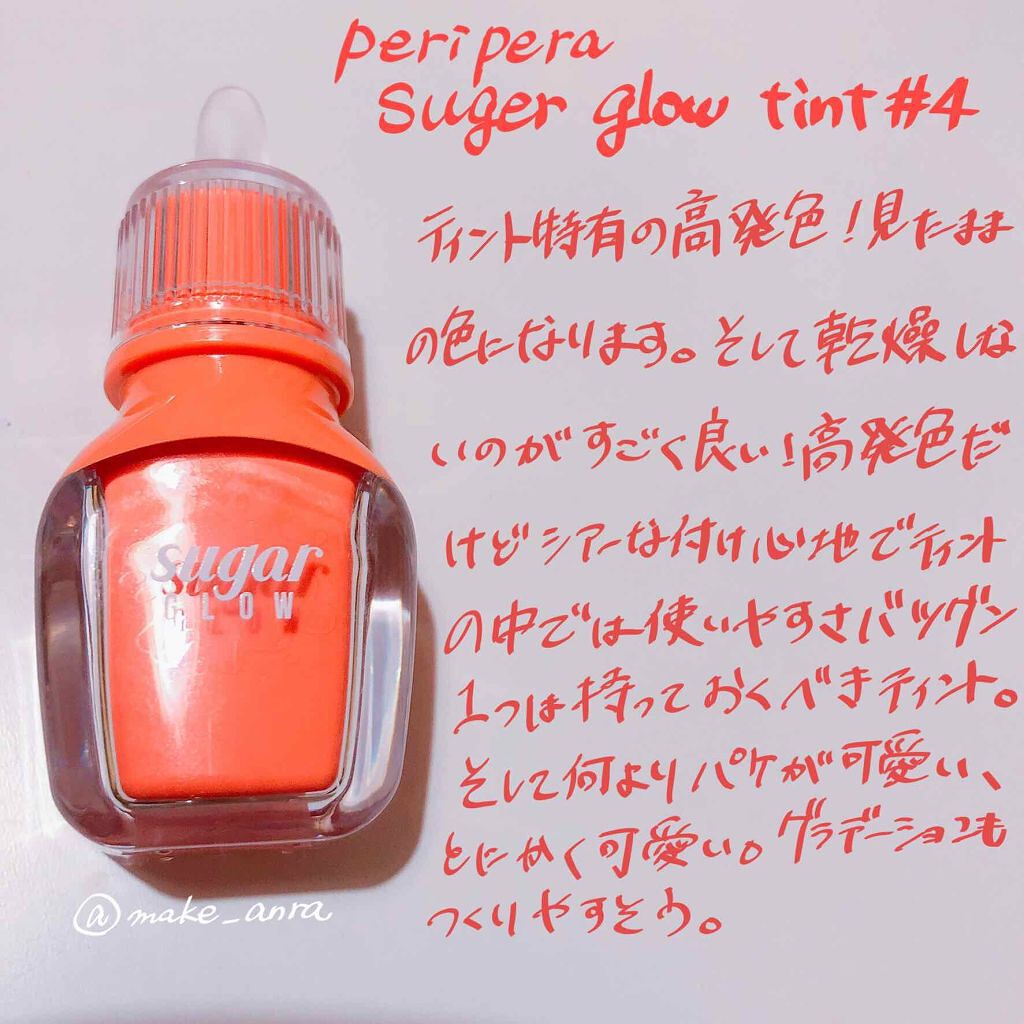 peripera
suger glow tint #4
ティント特有の高発色！見たまま
の色になります。そして乾燥しな
いのがすごく良い！高発色だ
けどシアーな付け心地でティント
の中では使いやすさバツグン
1つは持っておくべきティント。
そして何よりパケが可愛い、
とにかく可愛い。グラデーションも
つくりやすそう。
sugar
GLOW
@make_anra